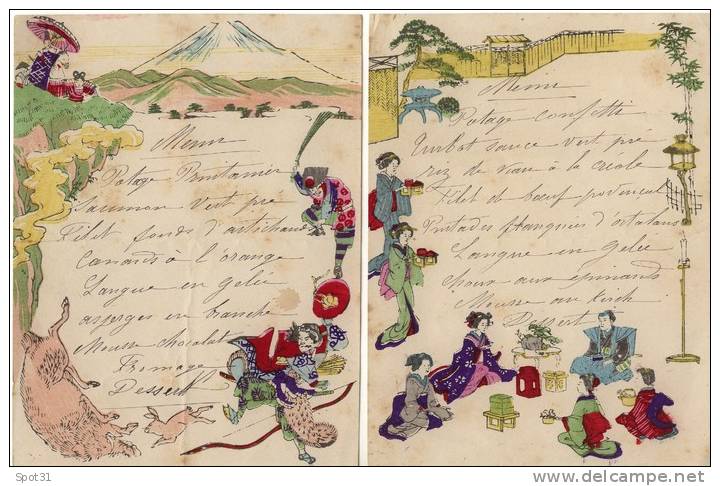 Menu
Potage Printanier
Saumon Vert pré
Filet fonds d'artichauts
Canards à l'orange
Langue en Gelée
asperges en branche
Mousse chocolat
Fromage
Dessert
Menu
Potage Confetti
Turbot sauce vert pré
riz de veau à la créole
Filet de boeuf provençal
Pintades flanquées d'ortolans
Langue en Gelée
choux aux épinards
Mousse au Kirch
Dessert
Spot31
delcampe.net